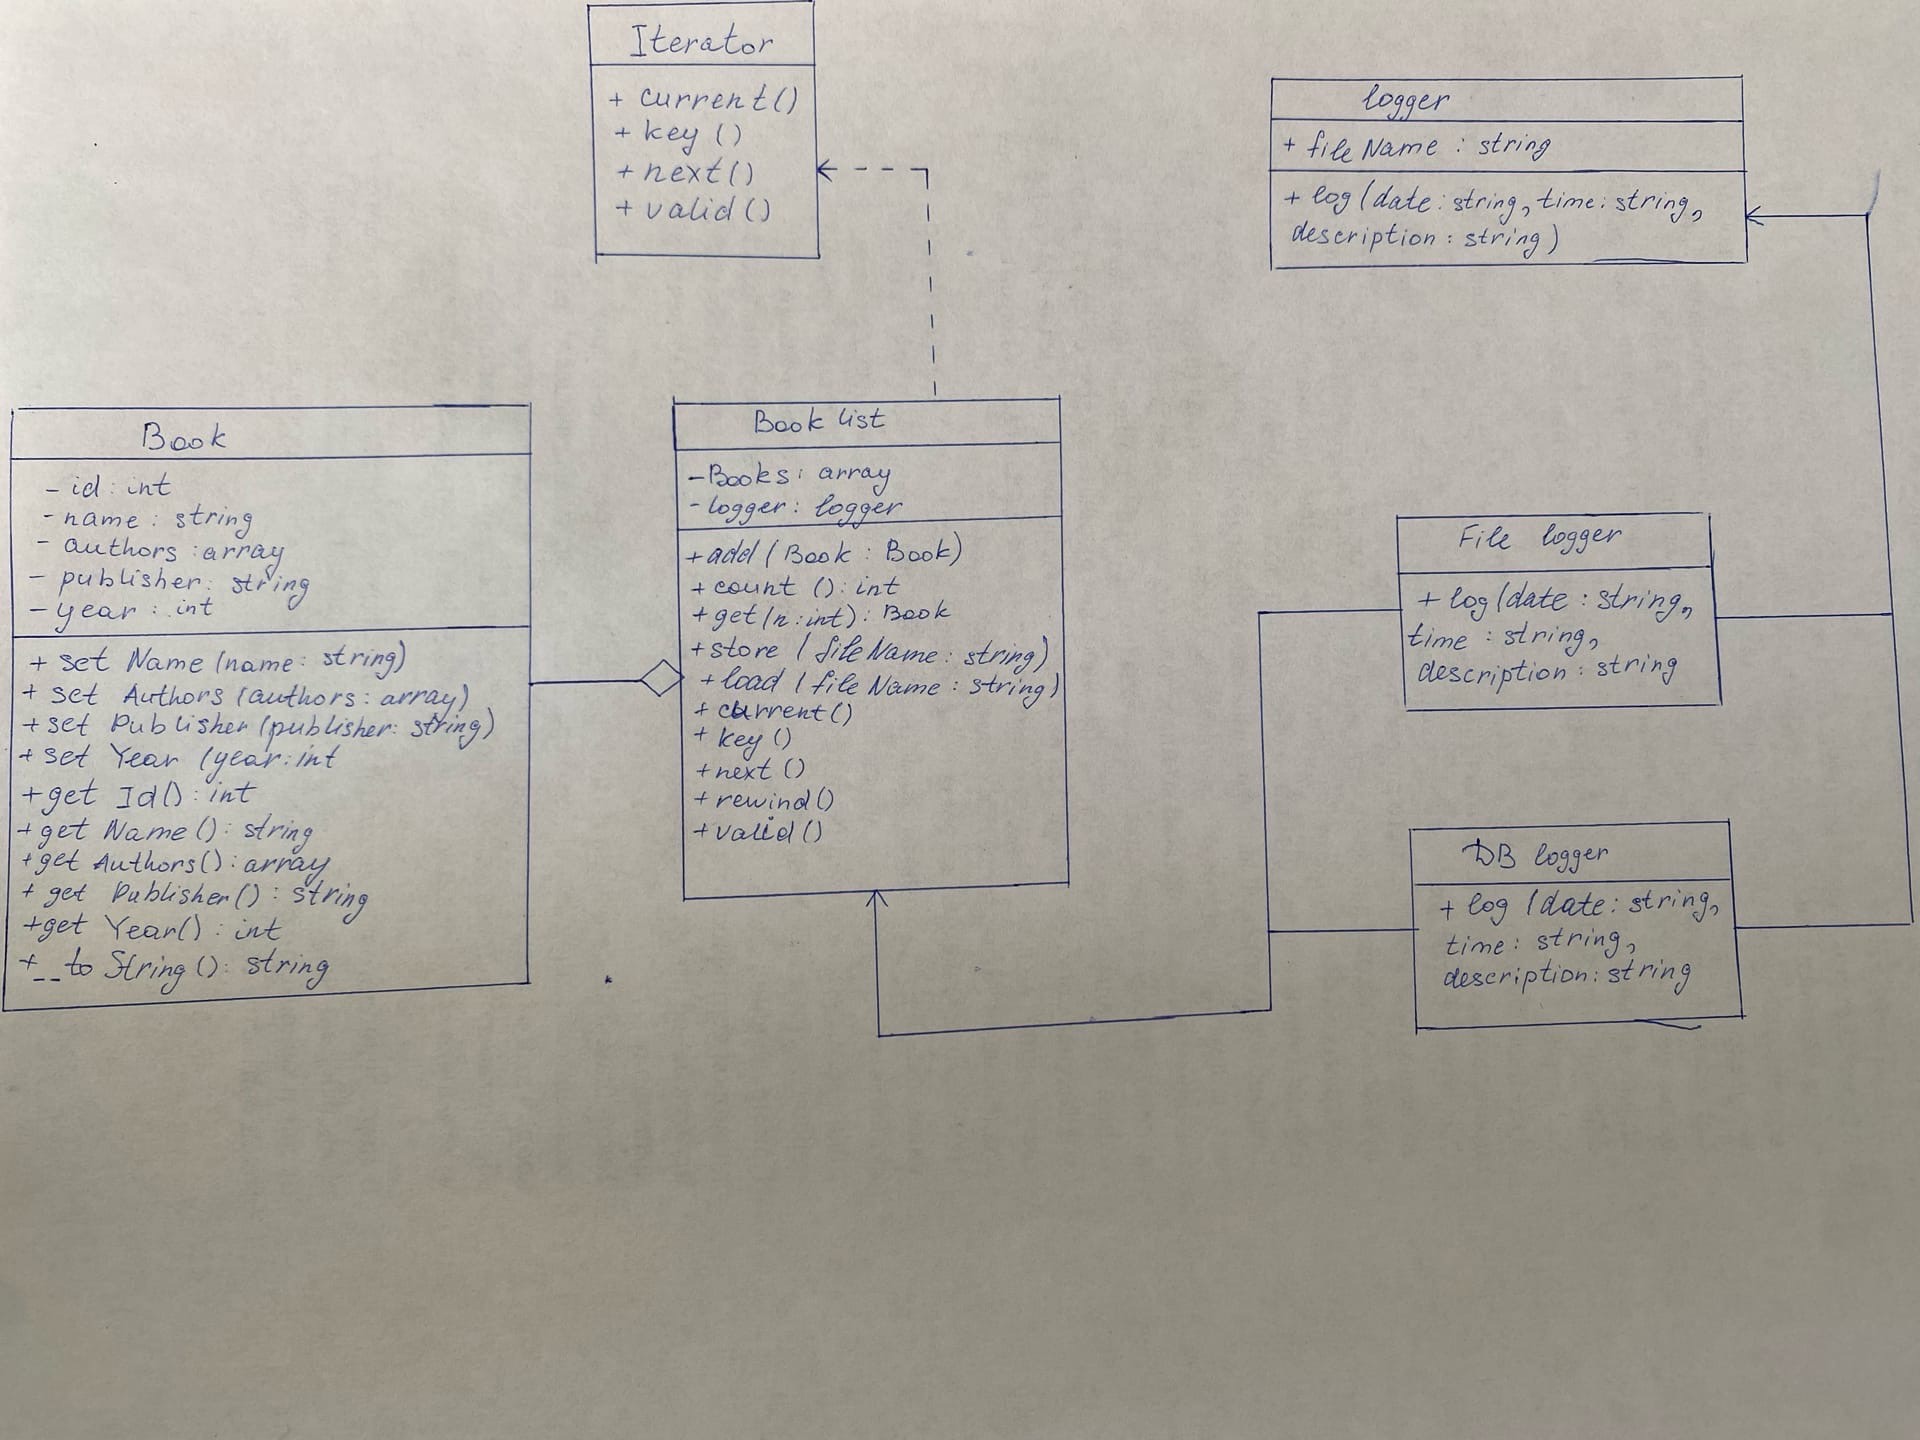 Iterator
+ current()
+ key ()
+ next()
+ valid()
logger
+ fileName : string
+ log(date: string, time: string,
description: string)
Book
- id: int
- name: string
- authors: array
- publisher: string
- year: int
+ set Name (name: string)
+ set Authors (authors: array)
+ set Publisher (publisher: string)
+ set Year (year: int
+ get Id(): int
+ get Name(): string
+ get Authors(): array
+ get Publisher(): string
+ get Year(): int
+ __to String(): string
Book list
- Books: array
- logger: logger
+ add (Book: Book)
+ count (): int
+ get (n: int): Book
+ store (fileName: string)
+ load (fileName: string)
+ current()
+ key ()
+ next ()
+ rewind()
+ valid()
File logger
+ log(date: string,
time: string,
description: string
DB logger
+ log (date: string,
time: string,
description: string